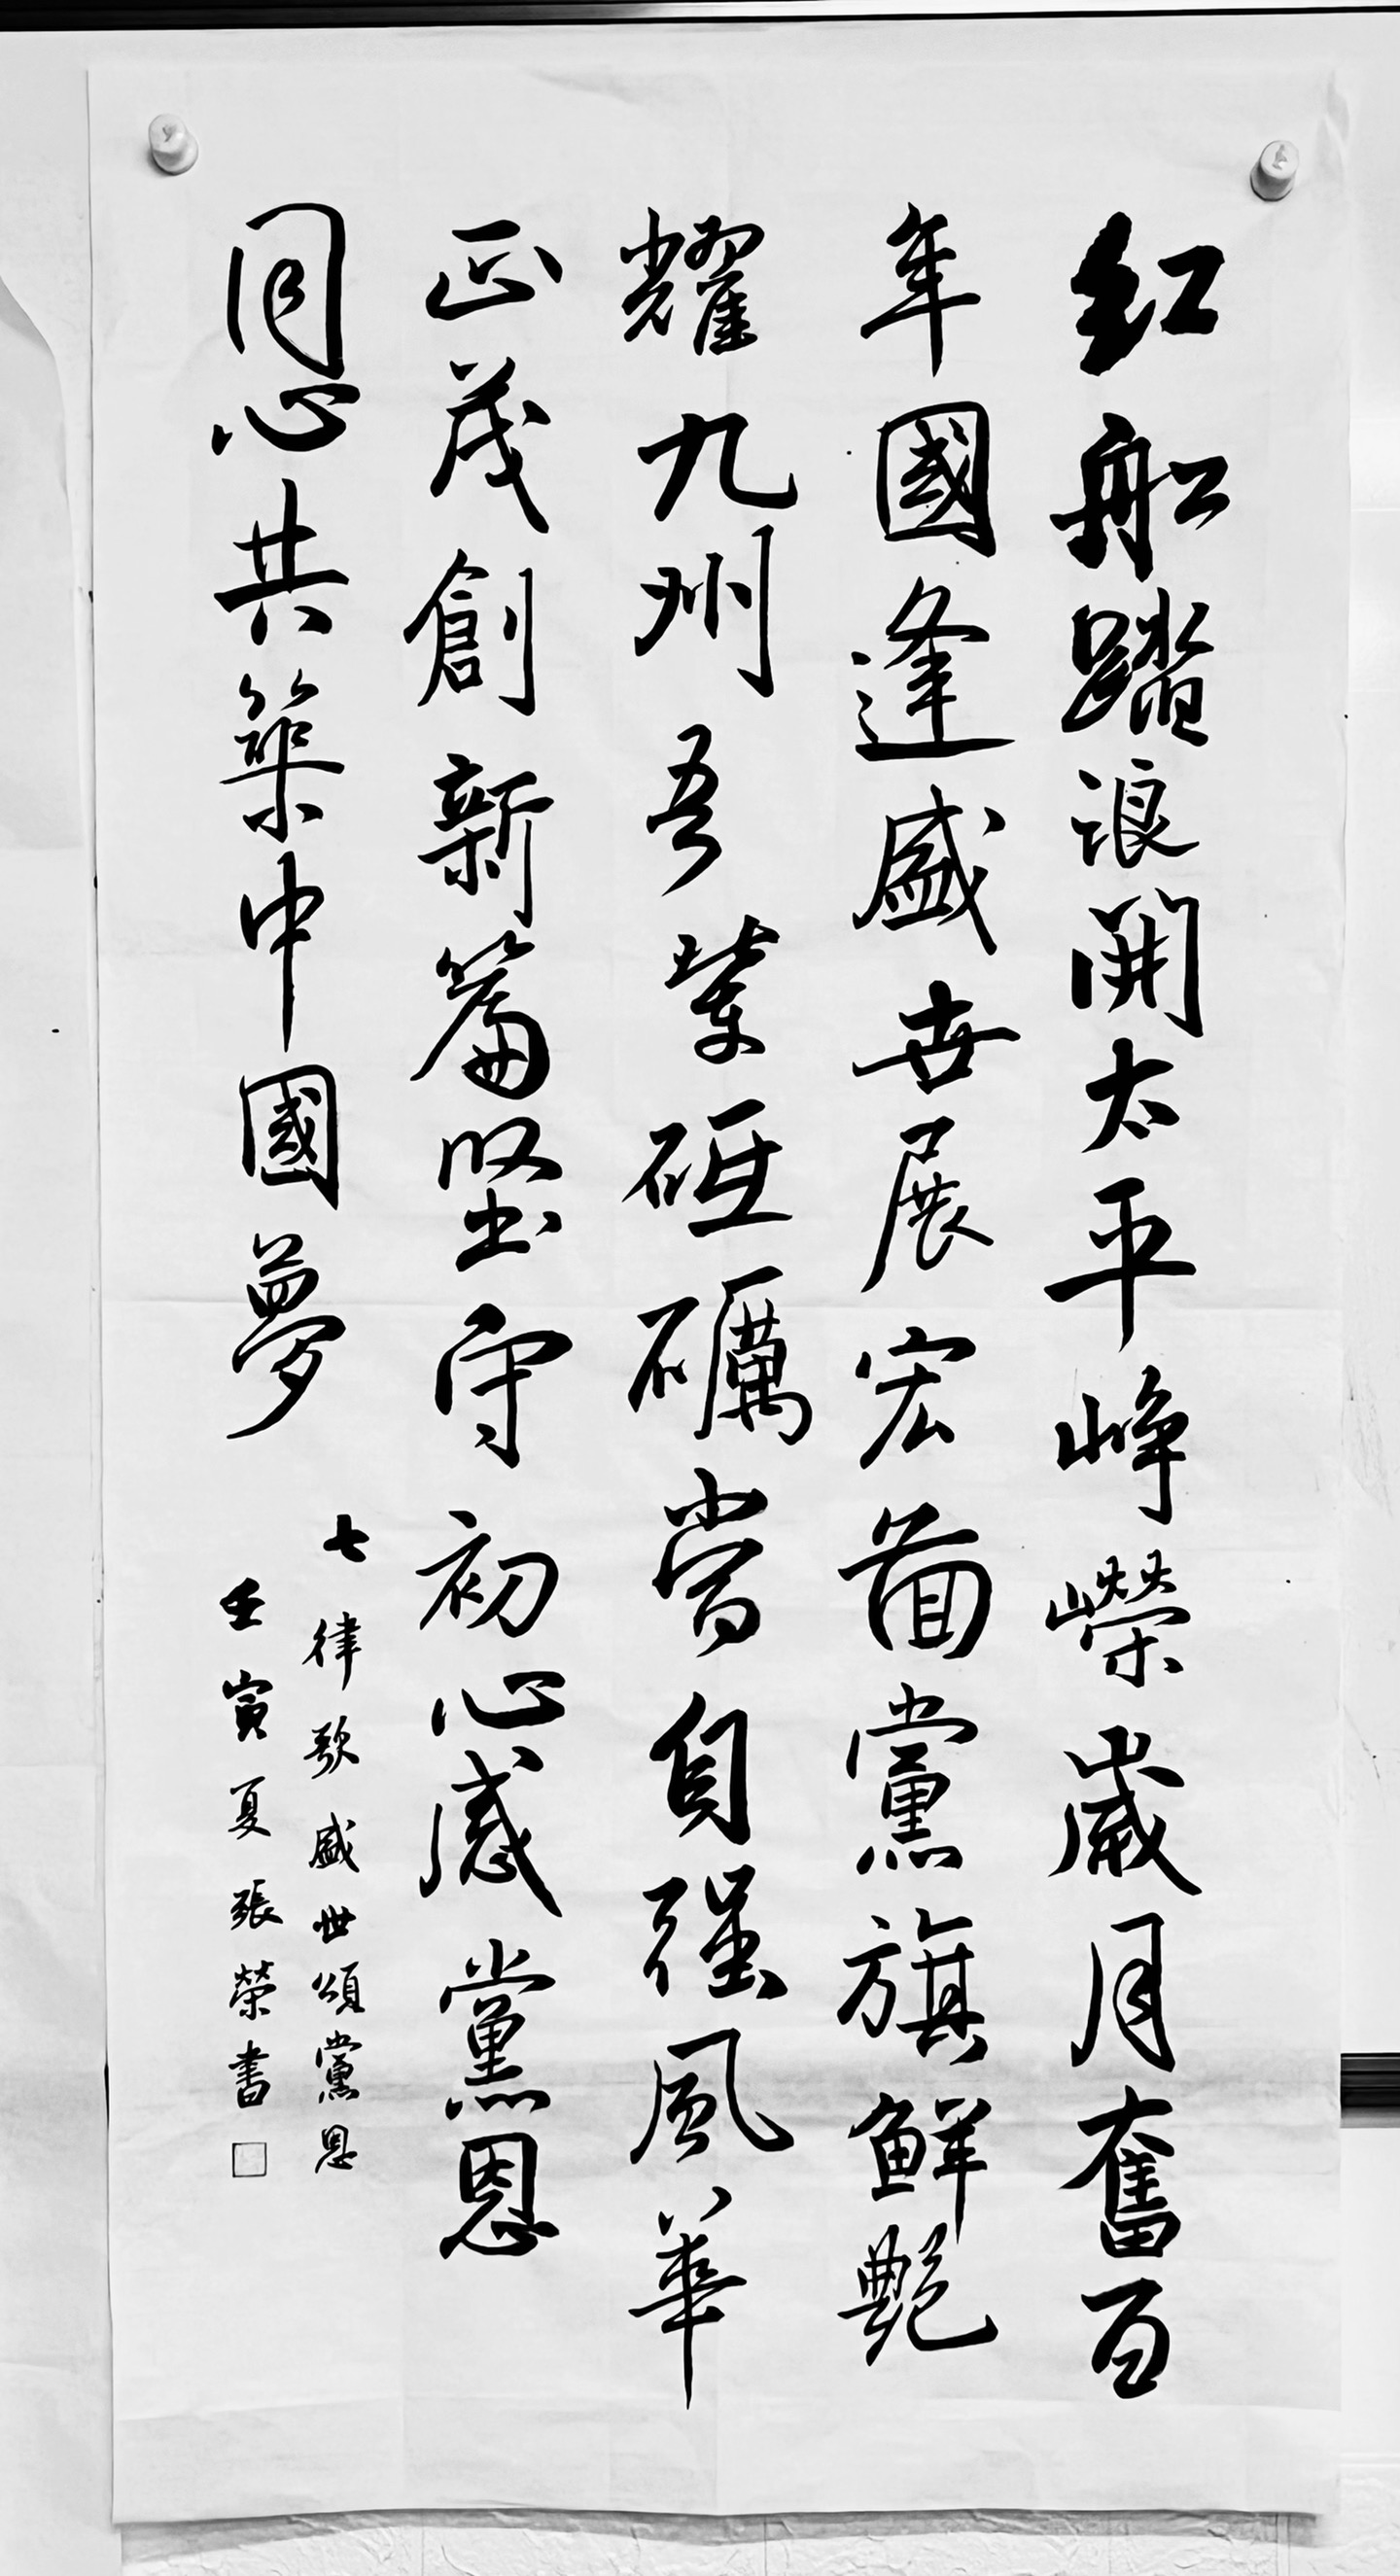 紅船踏浪開太平崢嶸歲月奮百
年國逢盛世展宏圖黨旗鮮艷
耀九州吾輩砥礪當自强風華
正茂創新篇堅守初心感黨恩
同心共築中國夢
七律歌盛世頌黨恩
壬寅夏張榮書